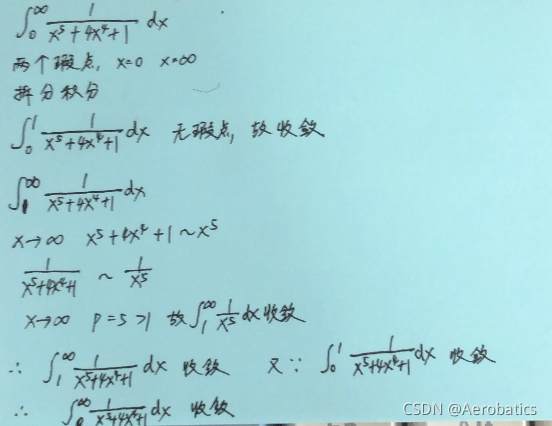 ∫₀^∞ 1/(x⁵+4x⁴+1) dx
两个瑕点, x=0 x=∞
拆分积分
∫₀¹ 1/(x⁵+4x⁴+1) dx 无瑕点, 故收敛
∫₁^∞ 1/(x⁵+4x⁴+1) dx
x→∞ x⁵+4x⁴+1 ~ x⁵
1/(x⁵+4x⁴+1) ~ 1/x⁵
x→∞ P=5>1 故∫₁^∞ 1/x⁵ dx收敛
∴ ∫₁^∞ 1/(x⁵+4x⁴+1) dx 收敛 又∵ ∫₀¹ 1/(x⁵+4x⁴+1) dx 收敛
∴ ∫₀^∞ 1/(x⁵+4x⁴+1) dx 收敛
CSDN @Aerobatics